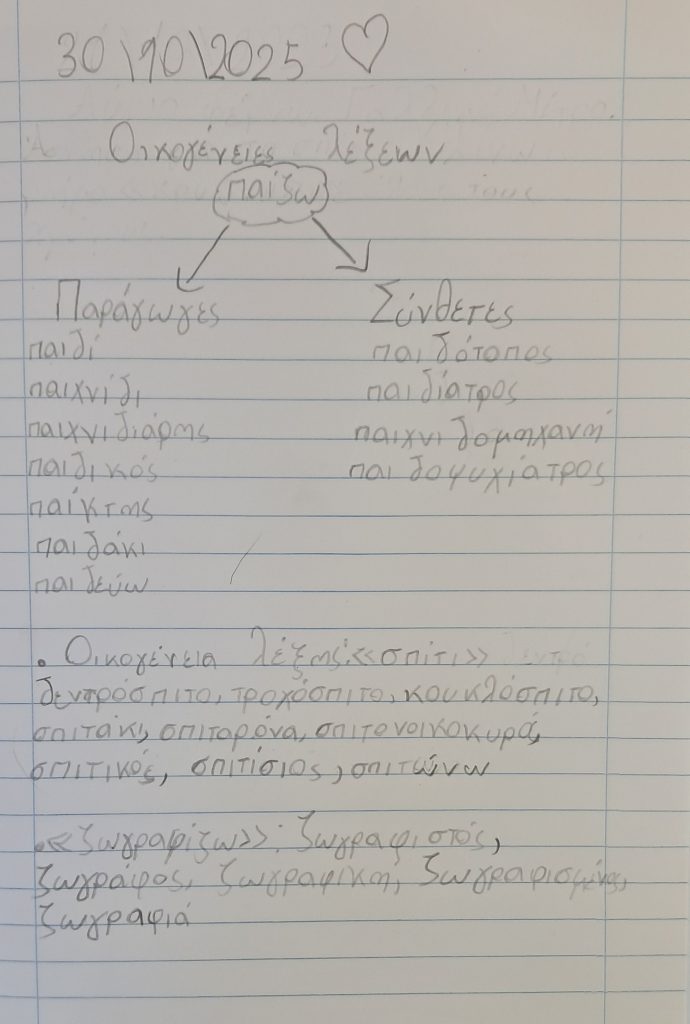 30\10\2025 ♡
Οικογένειες λέξεων
παίζω
Παράγωγες Σύνθετες
παιδί παιδότοπος
παιχνίδι παιδίατρος
παιχνιδιάρης παιχνιδομηχανή
παιδικός παιδοψυχίατρος
παίκτης
παιδάκι
παιδεύω
. Οικογένεια λέξης: «σπίτι»
δεντρόσπιτο, τροχόσπιτο, κουκλόσπιτο,
σπιτάκι, σπιταρόνα, σπιτονοικοκυρά,
σπιτικός, σπιτίσιος, σπιτώνω
. «ζωγραφίζω»: ζωγραφιστός,
ζωγράφος, ζωγραφικη, ζωγραφισμένος,
ζωγραφιά